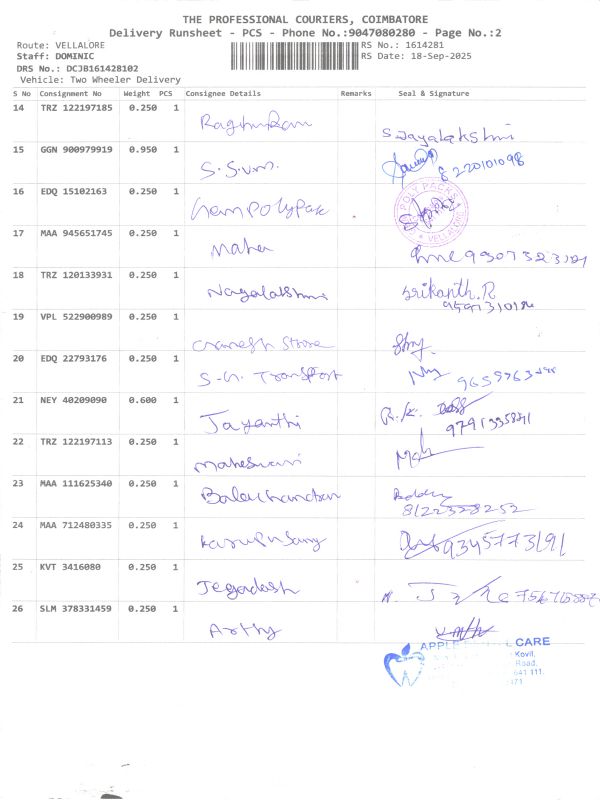 THE PROFESSIONAL COURIERS, COIMBATORE
Delivery Runsheet - PCS - Phone No.:9047080280 - Page No.:2
Route: VELLALORE
RS No.: 1614281
Staff: DOMINIC
RS Date: 18-Sep-2025
DRS No.: DCJB161428102
Vehicle: Two Wheeler Delivery
S No Consignment No Weight PCS Consignee Details Remarks Seal & Signature
14 TRZ 122197185 0.250 1
Raghuram
S Jayalakshmi
15 GGN 900979919 0.950 1
S.S.V.M.
8220101098
16 EDQ 15102163 0.250 1
POLY PACK
VELLALORE
17 MAA 945651745 0.250 1
Maha
18 TRZ 120133931 0.250 1
Nagalakshmi
Srikanth.R
19 VPL 522900989 0.250 1
Ganesh Store
20 EDQ 22793176 0.250 1
S.N. Transport
21 NEY 40209090 0.600 1
Jayanthi
R.K.
22 TRZ 122197113 0.250 1
Maheswari
23 MAA 111625340 0.250 1
Balachandran
8122328252
24 MAA 712480335 0.250 1
9345773191
25 KVT 3416080 0.250 1
Jegadesh
26 SLM 378331459 0.250 1
Arthy
APPLE CARE
Kovil.
Road.
641 111.